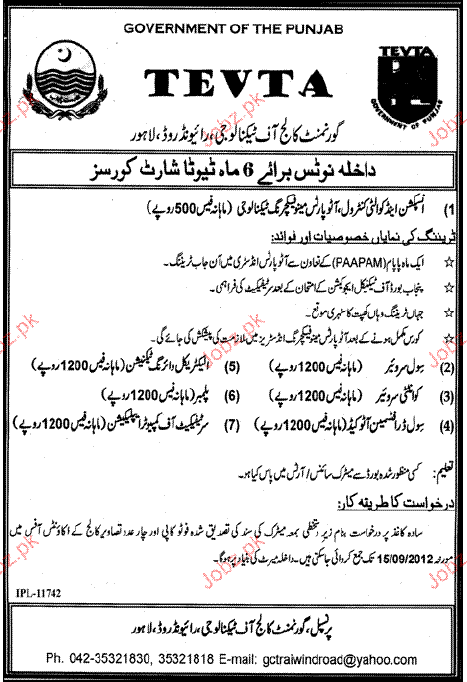 GOVERNMENT OF THE PUNJAB
TEVTA
TEVTA
GOVERNMENT OF PUNJAB
گورنمنٹ کالج آف ٹیکنالوجی، رائیونڈ روڈ، لاہور
داخلہ نوٹس برائے 6 ماہ ٹیوٹا شارٹ کورسز
(1 انسپکشن اینڈ کوالٹی کنٹرول، آٹو پارٹس مینوفیکچرنگ ٹیکنالوجی (ماہانہ فیس 500 روپے)
ٹریننگ کی نمایاں خصوصیات اور فوائد:
☆ ایک ماہ پاپام (PAAPAM) کے تعاون سے آٹو پارٹس انڈسٹری میں آن جاب ٹریننگ۔
☆ پنجاب بورڈ آف ٹیکنیکل ایجوکیشن کے امتحان کے بعد سرٹیفکیٹ کی فراہمی۔
☆ جہاں ٹریننگ وہاں کھپت کا سنہری موقع۔
☆ کورس مکمل ہونے کے بعد آٹو پارٹس مینوفیکچرنگ انڈسٹریز میں ملازمت کی پیشکش کی جائے گی۔
(2) سول سروئیر (ماہانہ فیس 1200 روپے) (5) الیکٹریکل وائرنگ ٹیکنیشن (ماہانہ فیس 1200 روپے)
(3) کوانٹٹی سروئیر (ماہانہ فیس 1200 روپے) (6) پلمبر (ماہانہ فیس 1200 روپے)
(4) سول ڈرافٹسمین آٹو کیڈ (ماہانہ فیس 1200 روپے) (7) سرٹیفکیٹ آف کمپیوٹر اپلیکیشن (ماہانہ فیس 1200 روپے)
تعلیم: کسی منظور شدہ بورڈ سے میٹرک سائنس / آرٹس میں پاس کیا ہو۔
درخواست کا طریقہ کار:
سادہ کاغذ پر درخواست بنام زیر دستخطی بمعہ میٹرک کی سند کی تصدیق شدہ فوٹو کاپی اور چار عدد تصاویر کالج کے اکاؤنٹس آفس میں
مورخہ 15/09/2012 تک جمع کروائی جا سکتی ہیں۔ داخلہ میرٹ کی بنیاد پر ہو گا۔
IPL-11742
پرنسپل، گورنمنٹ کالج آف ٹیکنالوجی، رائیونڈ روڈ، لاہور
Ph. 042-35321830, 35321818 E-mail: gctraiwindroad@yahoo.com
Jobz.pk